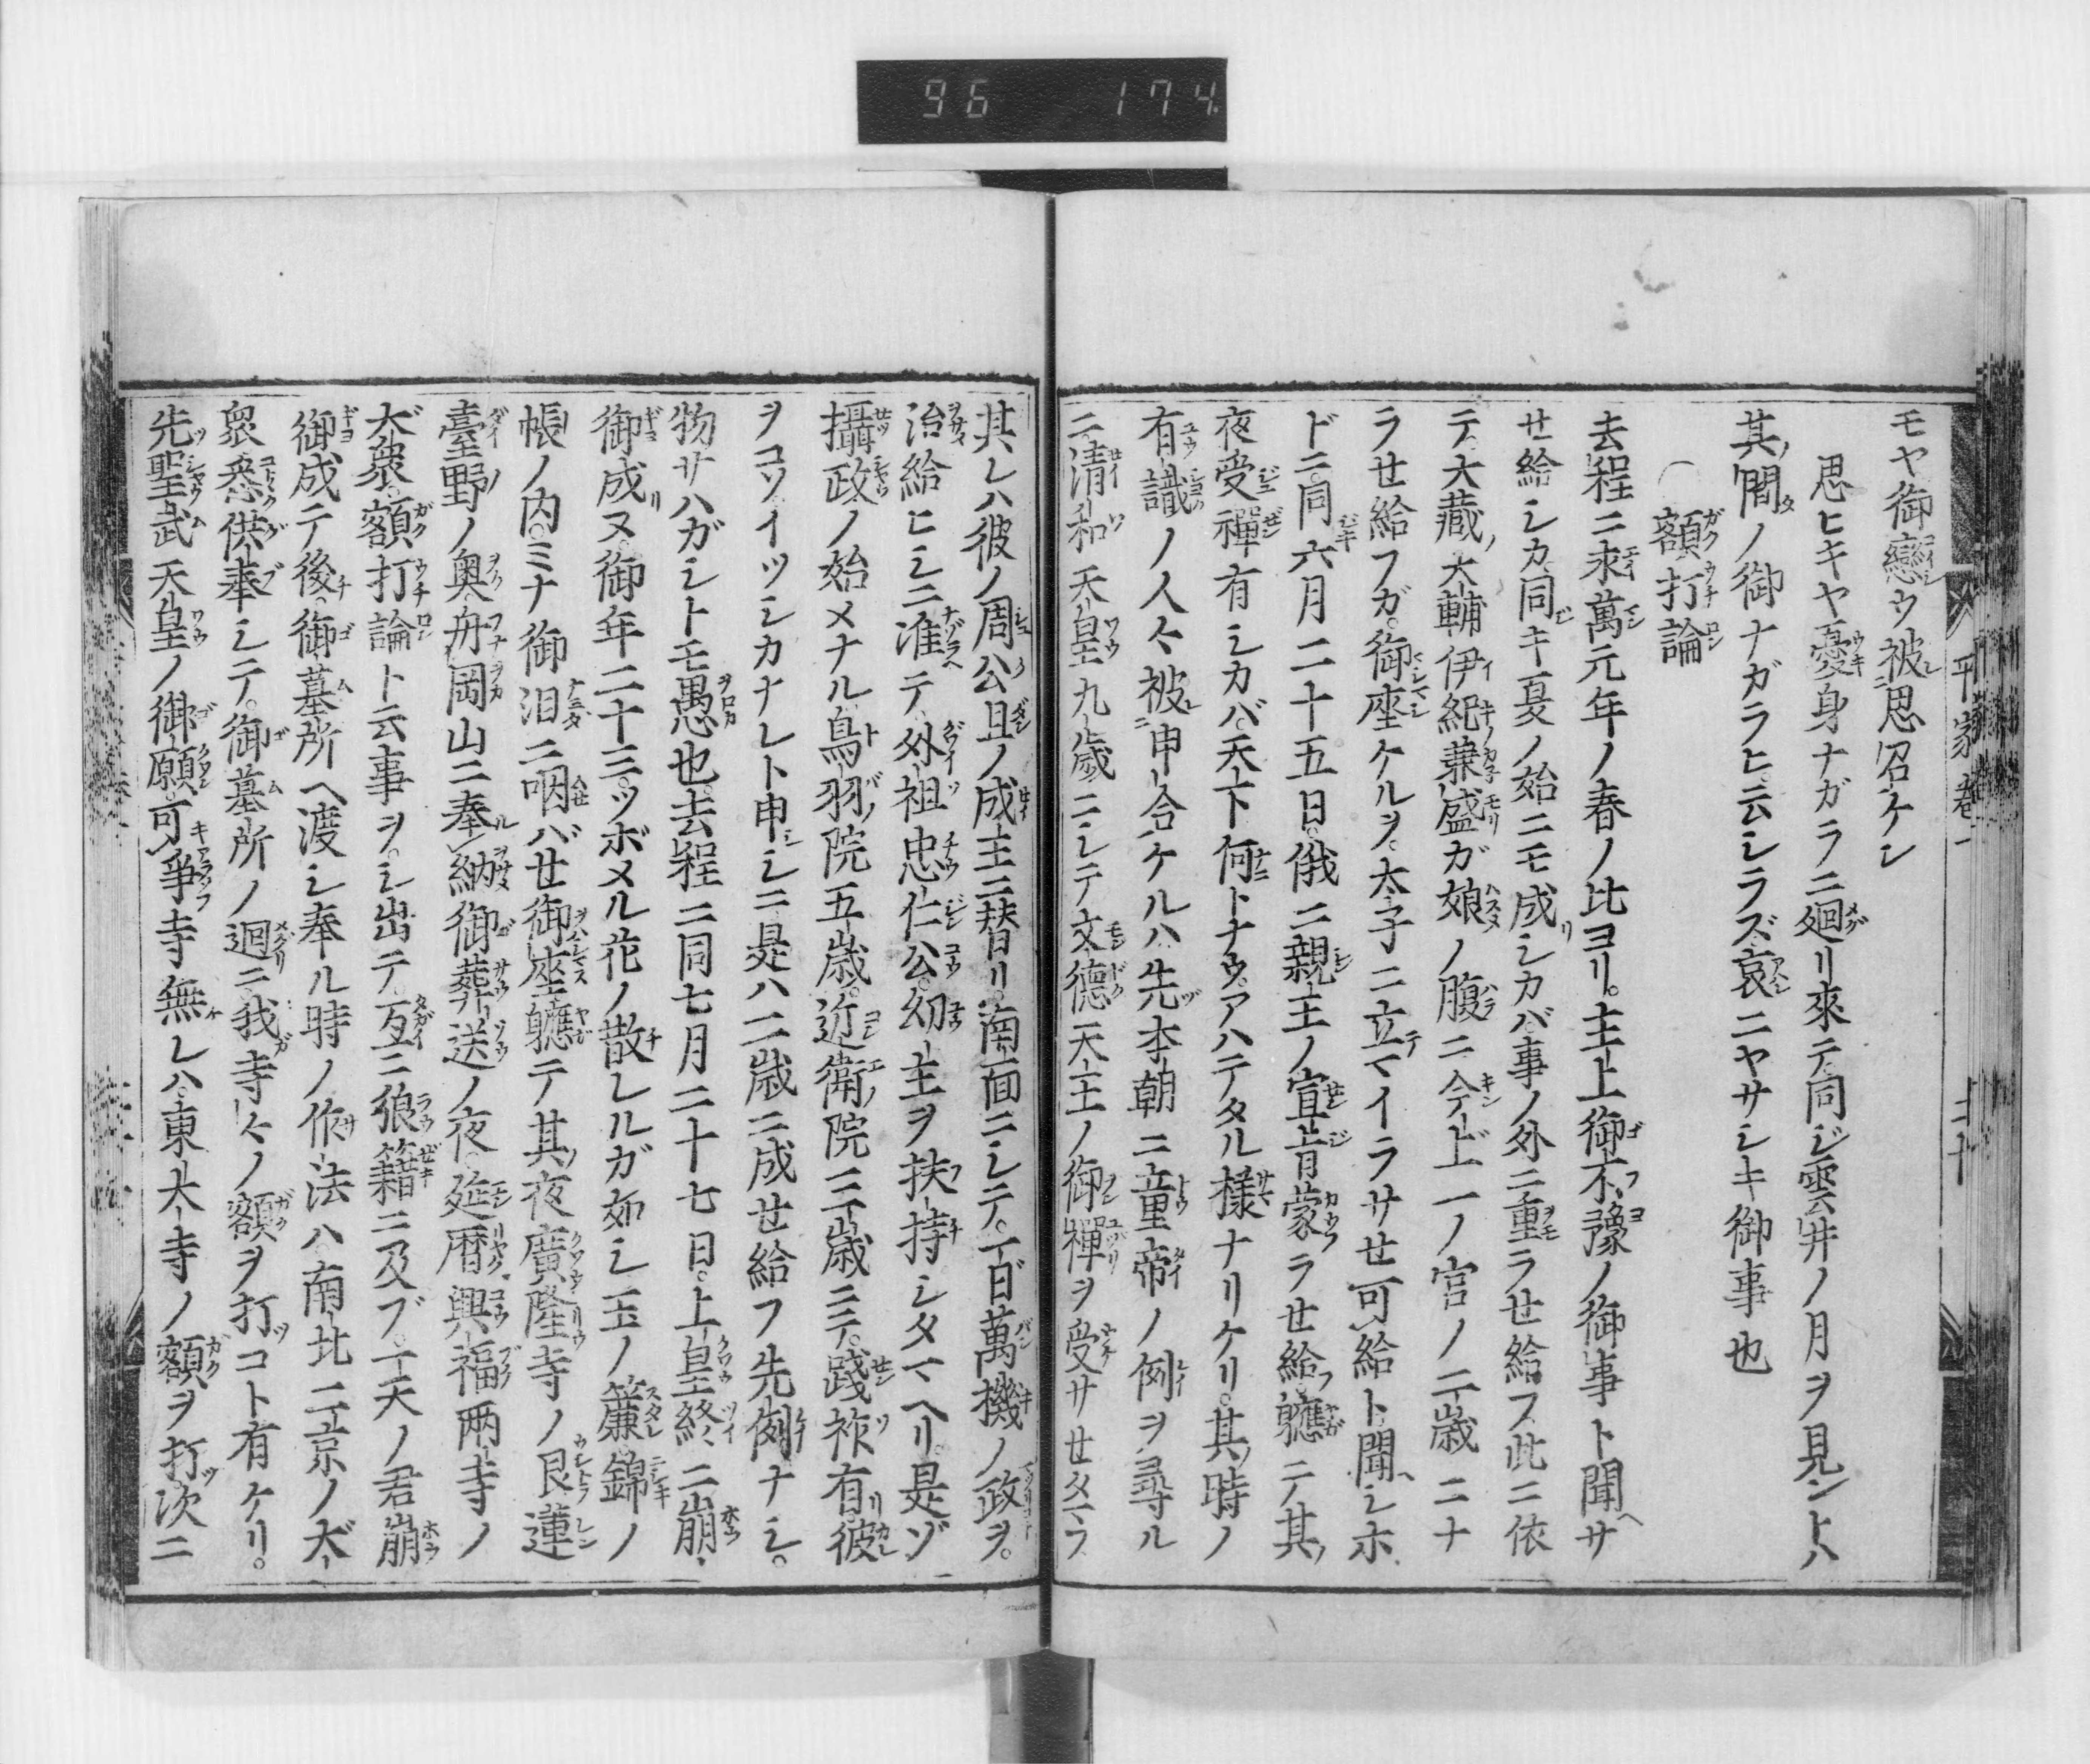 96 174
平家巻一
二十
モヤ御戀ウ被思召ケン
思ヒキヤ憂身ナガラニ廻リ來テ同ジ雲井ノ月ヲ見ントハ
其間ノ御ナガラヒ云シラズ哀ニヤサシキ御事也
額打論
去程ニ永萬元年ノ春ノ比ヨリ。主上御不豫ノ御事ト聞サ
せ給シカ同キ夏ノ始ニモ成シカバ事ノ外ニ重ラせ給フ此ニ依
テ。大藏大輔伊紀兼盛ガ娘ノ腹ニ今上一ノ宮ノ二歳ニナ
ラせ給フガ。御座ケルヲ。太子ニ立マイラサせ可給ト聞シホ
ドニ。同六月二十五日。俄ニ親王ノ宣旨蒙ラせ給。軈テ其
夜受禪有シカバ。天下何トナウ。アハテタル樣ナリケリ。其時ノ
有識ノ人々被申合ケルハ先本朝ニ童帝ノ例ヲ尋ル
ニ。清和天皇九歳ニシテ文德天王ノ御禪ヲ受サせタマフ
其レハ彼ノ周公旦ノ成王ニ替リ。南面ニシテ。一日萬機ノ政ヲ。
治給ヒシニ准テ。外祖忠仁公。幼主ヲ扶持シタマヘリ。是ゾ
攝政ノ始メナル。鳥羽院五歳。近衛院三歳ニテ。踐祚有。彼
ヲコソ。イツシカナレト申シニ是ハ二歳ニ成せ給フ先例ナシ。
物サハガシトモ愚也。去程ニ同七月二十七日。上皇終ニ崩
御成ヌ。御年二十三。ツボメル花ノ散レルガ如シ玉ノ簾錦ノ
帳ノ内。ミナ御泪ニ咽バせ御座軈テ其夜廣隆寺ノ艮蓮
臺野ノ奥舟岡山ニ奉納御葬送ノ夜。延暦興福兩寺ノ
大衆。額打論ト云事ヲ。シ出テ。互ニ狼籍ニ及ブ。一天ノ君崩
御成テ後。御墓所ヘ渡シ奉ル時ノ作法ハ南北二京ノ大
衆悉供奉シテ。御墓所ノ迴ニ我寺々ノ額ヲ打コト有ケリ。
先聖武天皇ノ御願。可爭寺無レハ。東大寺ノ額ヲ打次ニ